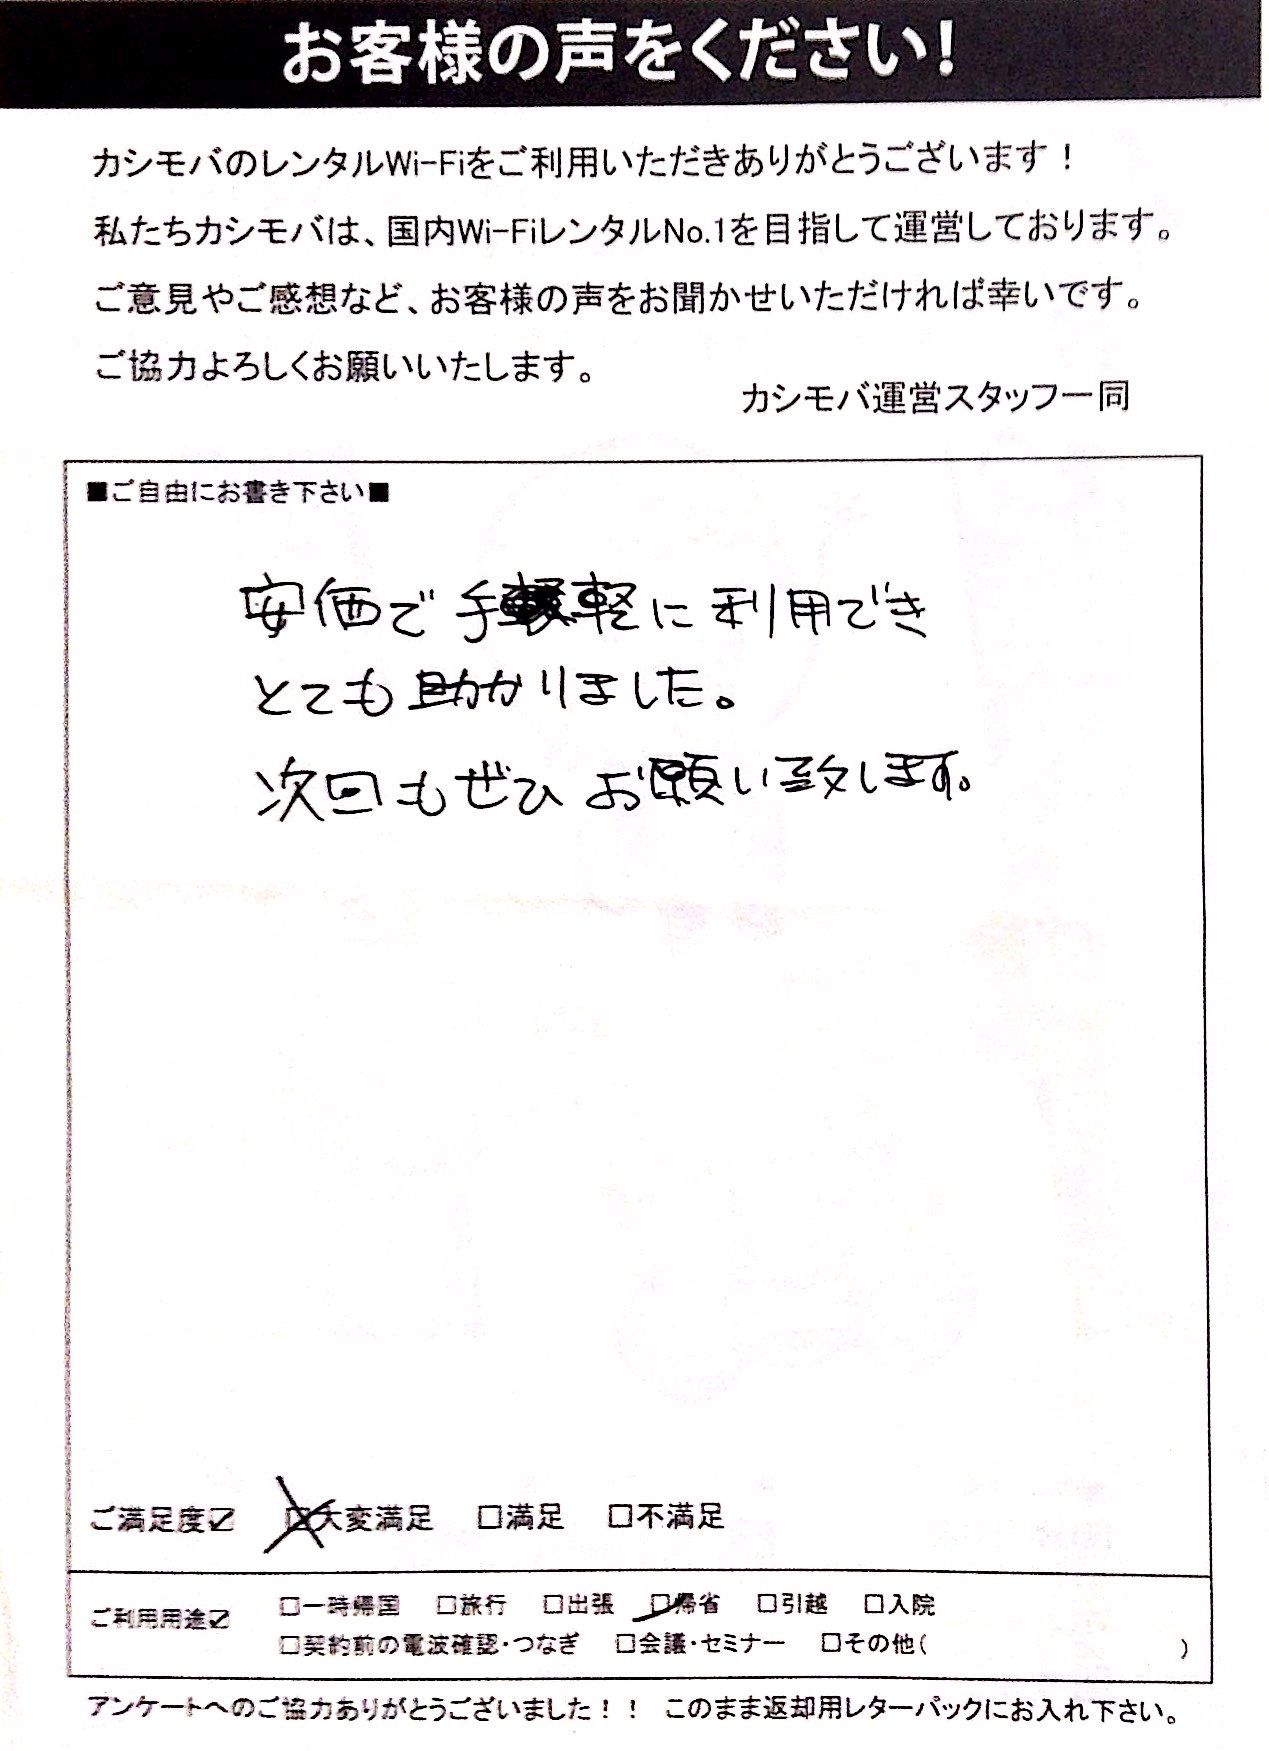 お客様の声をください!
カシモバのレンタルWi-Fiをご利用いただきありがとうございます！
私たちカシモバは、国内Wi-FiレンタルNo.1を目指して運営しております。
ご意見やご感想など、お客様の声をお聞かせいただければ幸いです。
ご協力よろしくお願いいたします。
カシモバ運営スタッフ一同
■ご自由にお書き下さい■
安価で手軽に利用でき
とても助かりました。
次回もぜひお願い致します。
ご満足度☑ ☒大変満足 □満足 □不満足
ご利用用途☑ □一時帰国 □旅行 □出張 ☑帰省 □引越 □入院
□契約前の電波確認・つなぎ □会議・セミナー □その他( )
アンケートへのご協力ありがとうございました！！ このまま返却用レターパックにお入れ下さい。